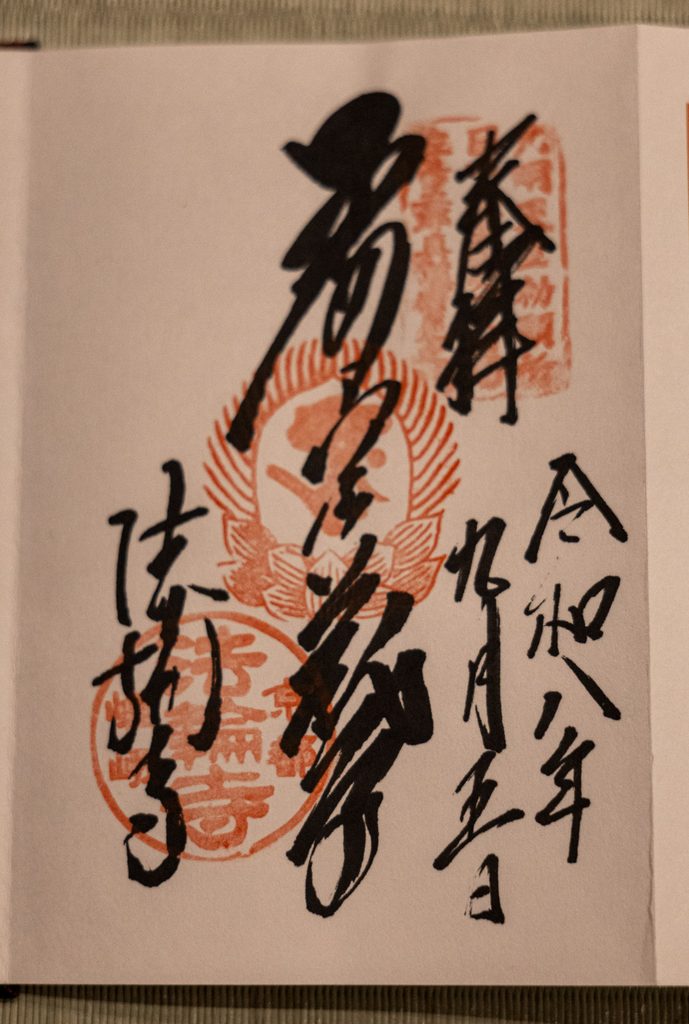 奉拝
令和八年
九月五日
虚空蔵尊
法輪寺
京都
法輪寺